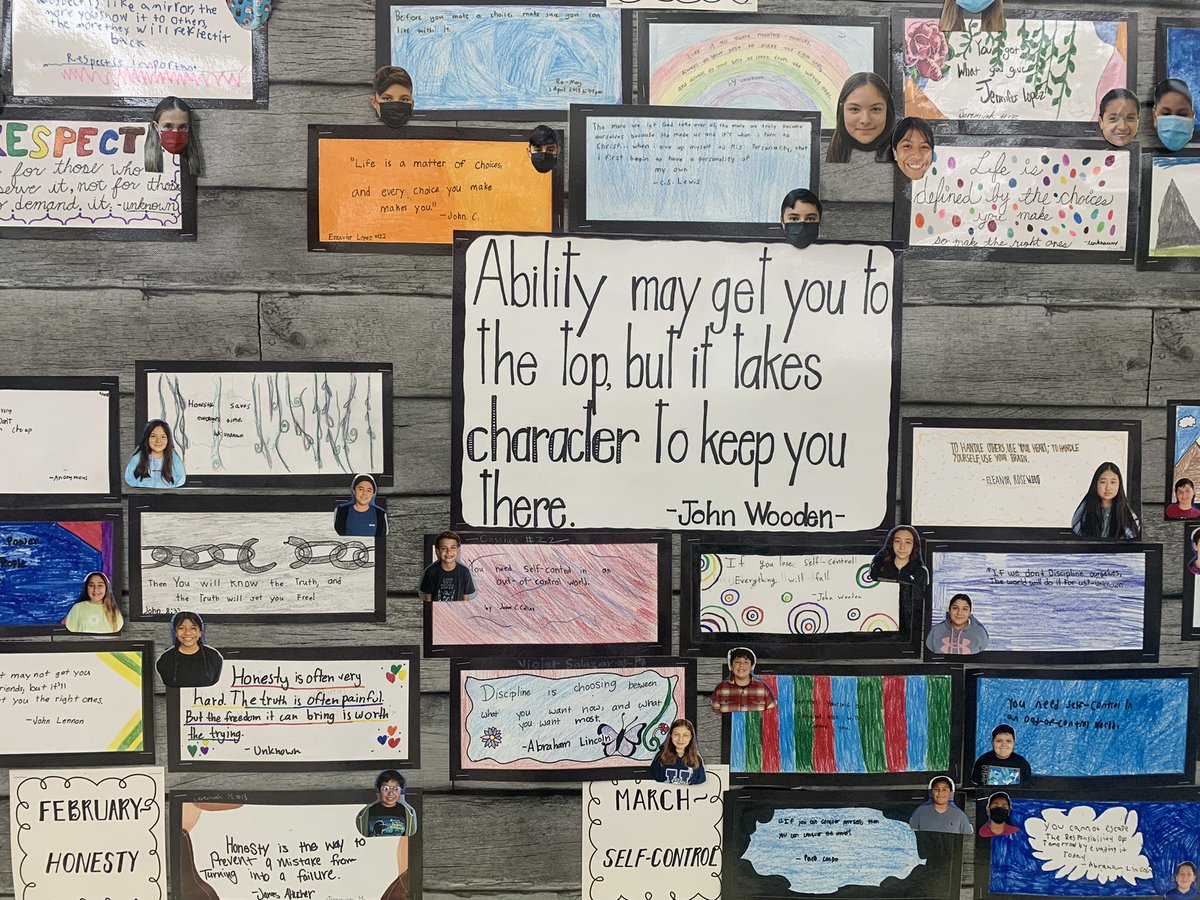 more you show it to others,
the more they will reflect it
back
Respect is important
RESPECT
for those who
serve it, not for those
demand, it. -unknown
Before you make a choice, make sure you can
live with it.
Life is all about making choices.
Always do your best to make the right ones,
and always do your best to learn from the wrong
ones.
by: unknown
You get
What you give
-Jennifer Lopez
"Life is a matter of choices,
and every choice you make
makes you"
-John C.
The more we let God take over us, the more we truly become
ourselves because He made us
Christ... when i give up myself to His Personality, that
i first begin to have a personality of
my own
-C.S. Lewis
Life is
defined by the choices
you make
so make the right ones -unknown
Ability may get you to
the top, but it takes
character to keep you
there. -John Wooden-
-Anonymous
Honesty saves
everyone's time.
unknown
TO HANDLE OTHERS USE YOUR HEART; TO HANDLE
YOURSELF, USE YOUR BRAIN.
-ELEANOR ROSEWOOD
Power
Then You will know the Truth, and
the Truth will set you Free!
John 8:32
Cassius #22
You need self-control in an
out-of-control world.
If you lose self-control
Everything will fall.
-John Wooden
"If we don't Discipline ourselves,
The world will do it for us" -unknown
it may not get you
friends, but it'll
you the right ones.
-John Lennon
Honesty is often very
hard. The truth is often painful.
But the freedom it can bring is worth
the trying.
- Unknown
Violet Salazar
Discipline is choosing between
what you want now, and what
you want most.
-Abraham Lincoln
You need self-control in
an out-of-control world.
FEBRUARY
HONESTY
Honesty is the way to
Prevent a mistake from
Turning into a failure.
-James Altucher
MARCH
SELF-CONTROL
"If you can control yourself then
you can control the world"
You cannot escape
The Responsibility of
Tomorrow by evading it
Today
-Abraham Lincoln